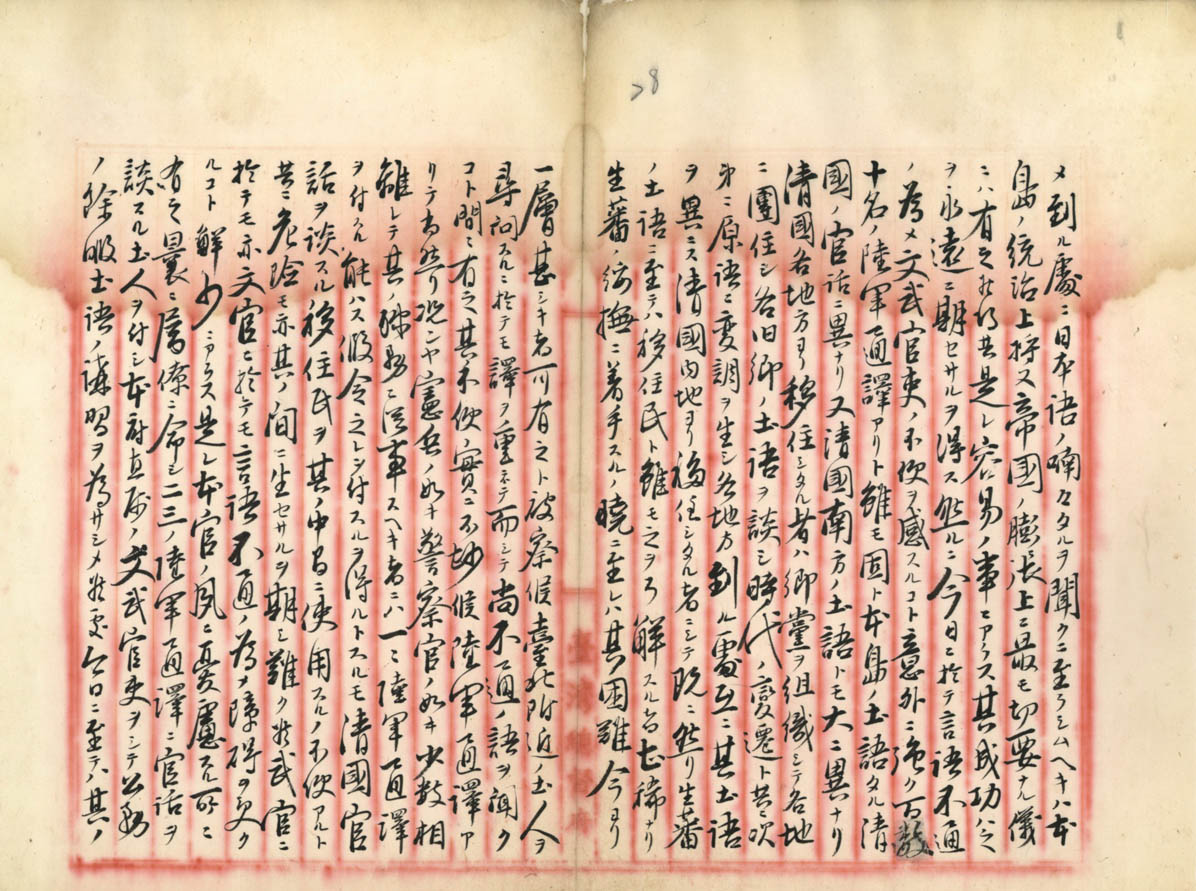 28
メ到ル處ニ日本語ノ喃々タルヲ聞クニ至ラシムヘキハ本
島ノ統治上将又帝國ノ膨張上ニ最モ切要ナル儀
ニハ有之候得共是レ容易ノ事ニアラス其成功ハ之
ヲ永遠ニ期セサルヲ得ス然ルニ今日ニ於テ言語不通
ノ為メ文武官吏ノ不便ヲ感スルコト意外ニ強ク百數
十名ノ陸軍通譯アリト雖モ固ト本島ノ土語タル清
國ノ官話ニ異ナリ又清國南方ノ土語トモ大ニ異ナリ
清國各地方ヨリ移住シタル者ハ郷黨ヲ組織シテ各地
ニ團住シ各旧郷ノ土語ヲ談シ時代ノ變遷ト共ニ次
第ニ原語ニ変調ヲ生シ各地方到ル處互ニ其土語
ヲ異ニス清國内地ヨリ移住シタル者ニシテ既ニ然リ生蕃
ノ土語ニ至テハ移住民ト雖モ之ヲ解スル者稀ナリ
生蕃ノ綏撫ニ着手スルノ曉ニ至レハ其困難今ヨリ
一層甚シキ者可有之ト被察候臺北附近土人ヲ
尋問スルニ於テモ譯ヲ重ネテ而シテ尚不通ノ語ヲ聞ク
コト間々有之其不便ノ實ニ不尠候陸軍通譯ア
リテ尚然リ况ンヤ憲兵ノ如キ警察官ノ如キ少数相
離レテ其ノ職務ニ従事スヘキ者ニハ一々陸軍通譯
ヲ付スル能ハス假令之レヲ付スルヲ得ルトスルモ清國官
話ヲ談スル移住民ヲ其ノ中間ニ使用スルノ不便アルト
共ニ危險モ亦其ノ間ニ生セサルヲ期シ難ク於武官ニ
於テモ亦文官ニ於テモ言語不通ノ為メ障碍ヲ受ク
ルコト鮮少ニアラス是レ本官ノ夙ニ憂慮スル所ニ
有之曩ニ属僚ニ命シ二三ノ陸軍通譯ニ官話ヲ
談スル土人ヲ付シ本府直属ノ文武官吏ヲシテ公務
ノ餘暇土語ノ講習ヲ為サシメ候處今日ニ至テハ其ノ